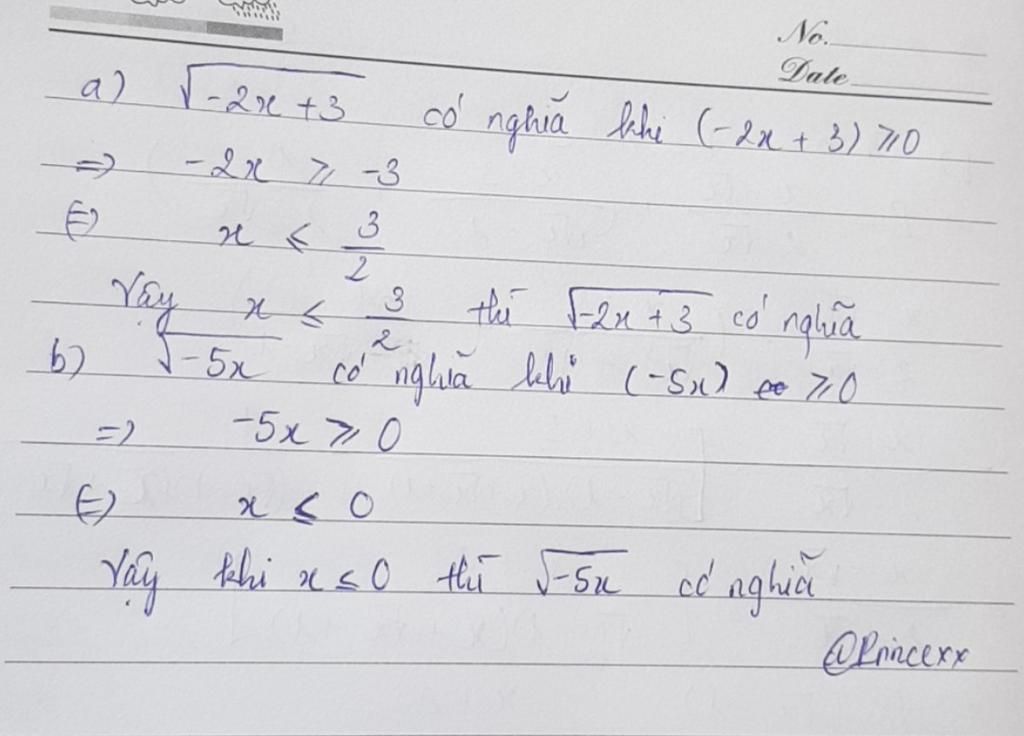 No.
Date
a) √(-2x + 3) có nghĩa khi (-2x + 3) ≥ 0
=> -2x ≥ -3
<=> x ≤ 3/2
Vậy x ≤ 3/2 thì √(-2x + 3) có nghĩa
b) √(-5x) có nghĩa khi (-5x) ≥ 0
=> -5x ≥ 0
<=> x ≤ 0
Vậy khi x ≤ 0 thì √(-5x) có nghĩa
@Princexx